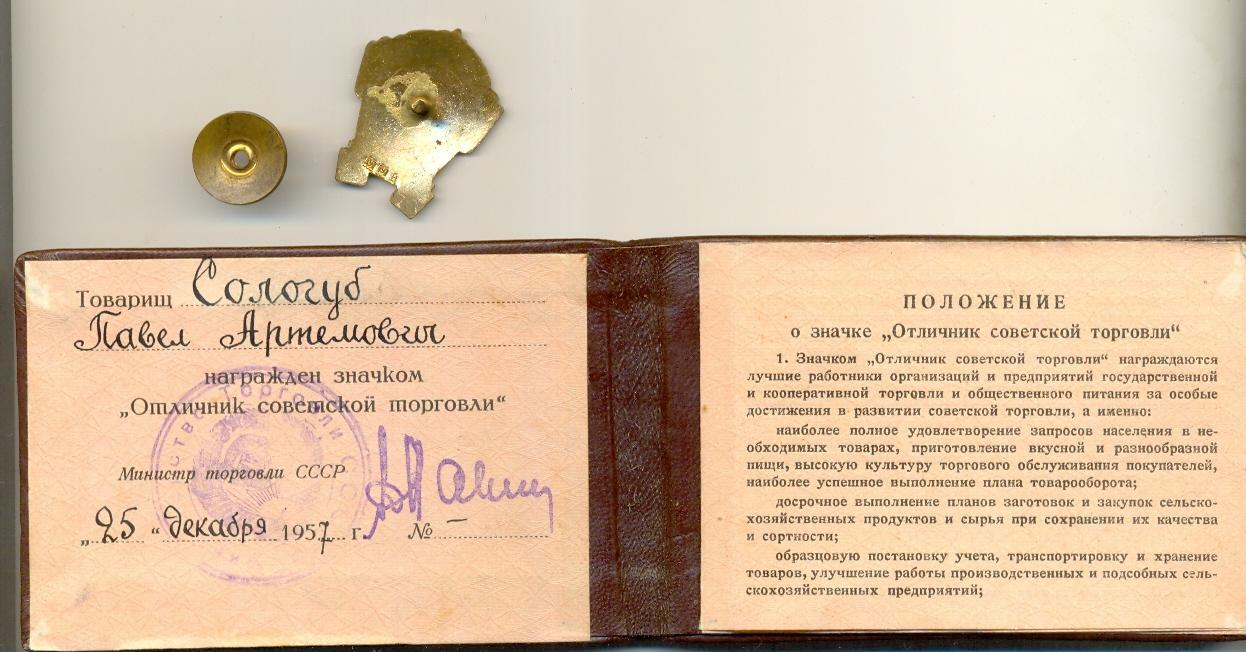 Товарищ Сологуб
Павел Артемович
награжден значком
„Отличник советской торговли“
Министр торговли СССР
„25“ декабря 1957 г. № –
торговли
ПОЛОЖЕНИЕ
о значке „Отличник советской торговли“
1. Значком „Отличник советской торговли“ награждаются
лучшие работники организаций и предприятий государственной
и кооперативной торговли и общественного питания за особые
достижения в развитии советской торговли, а именно:
наиболее полное удовлетворение запросов населения в не-
обходимых товарах, приготовление вкусной и разнообразной
пищи, высокую культуру торгового обслуживания покупателей,
наиболее успешное выполнение плана товарооборота;
досрочное выполнение планов заготовок и закупок сельско-
хозяйственных продуктов и сырья при сохранении их качества
и сортности;
образцовую постановку учета, транспортировку и хранение
товаров, улучшение работы производственных и подсобных сель-
скохозяйственных предприятий;